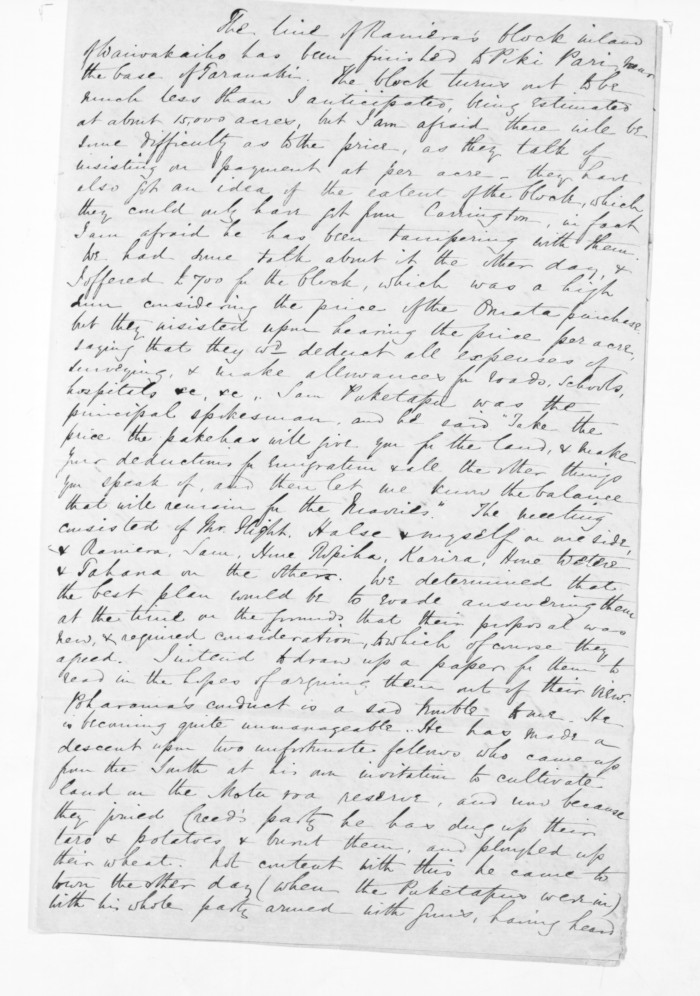 The line of Raniera's block inland
of Waiwakaiho has been finished to Piki Pari, near
the base of Taranaki. The block turns out to be
much less than I anticipated, being estimated
at about 15,000 acres, but I am afraid there will be
some difficulty as to the price, as they talk of
insisting on payment at per acre - they have
also got an idea of the extent of the block, which
they could only have got from Carrington, in fact
I am afraid he has been tampering with them.
We had some talk about it the other day, &
I offered £700 for the block, which was a high
sum considering the price of the Omata purchase
but they insisted upon hearing the price per acre,
saying that they wd deduct all expenses of
surveying, & make allowances for roads, schools,
hospitals &c, &c. Sam Puketapu was the
principal spokesman, and he said "Take the
price the pakehas will give you for the land, & make
your deductions for emigration & all the other things
you speak of, and then let me know the balance
that will remain for the Maories." The meeting
consisted of Mr. Flight, Halse & myself on one side,
& Raniera, Sam, Hone Ropiha, Karira, Hone
& Tahana on the other. We determined that
the best plan would be to evade answering them
at the time on the grounds that their proposal was
new, & required consideration, to which of course they
agreed. I intend to draw up a paper for them to
read in the hopes of arguing them out of their view.
Poharama's conduct is a sad trouble to me. He
is becoming quite unmanageable. He has made a
descent upon two unfortunate fellows who came up
from the South at his own invitation to cultivate
land on the Motu roa reserve, and now because
they joined Creed's party he has dug up their
taro & potatoes & burnt them, and ploughed up
their wheat. Not content with this he came to
town the other day (when the Puketapus were in)
with his whole party armed with guns, having heard